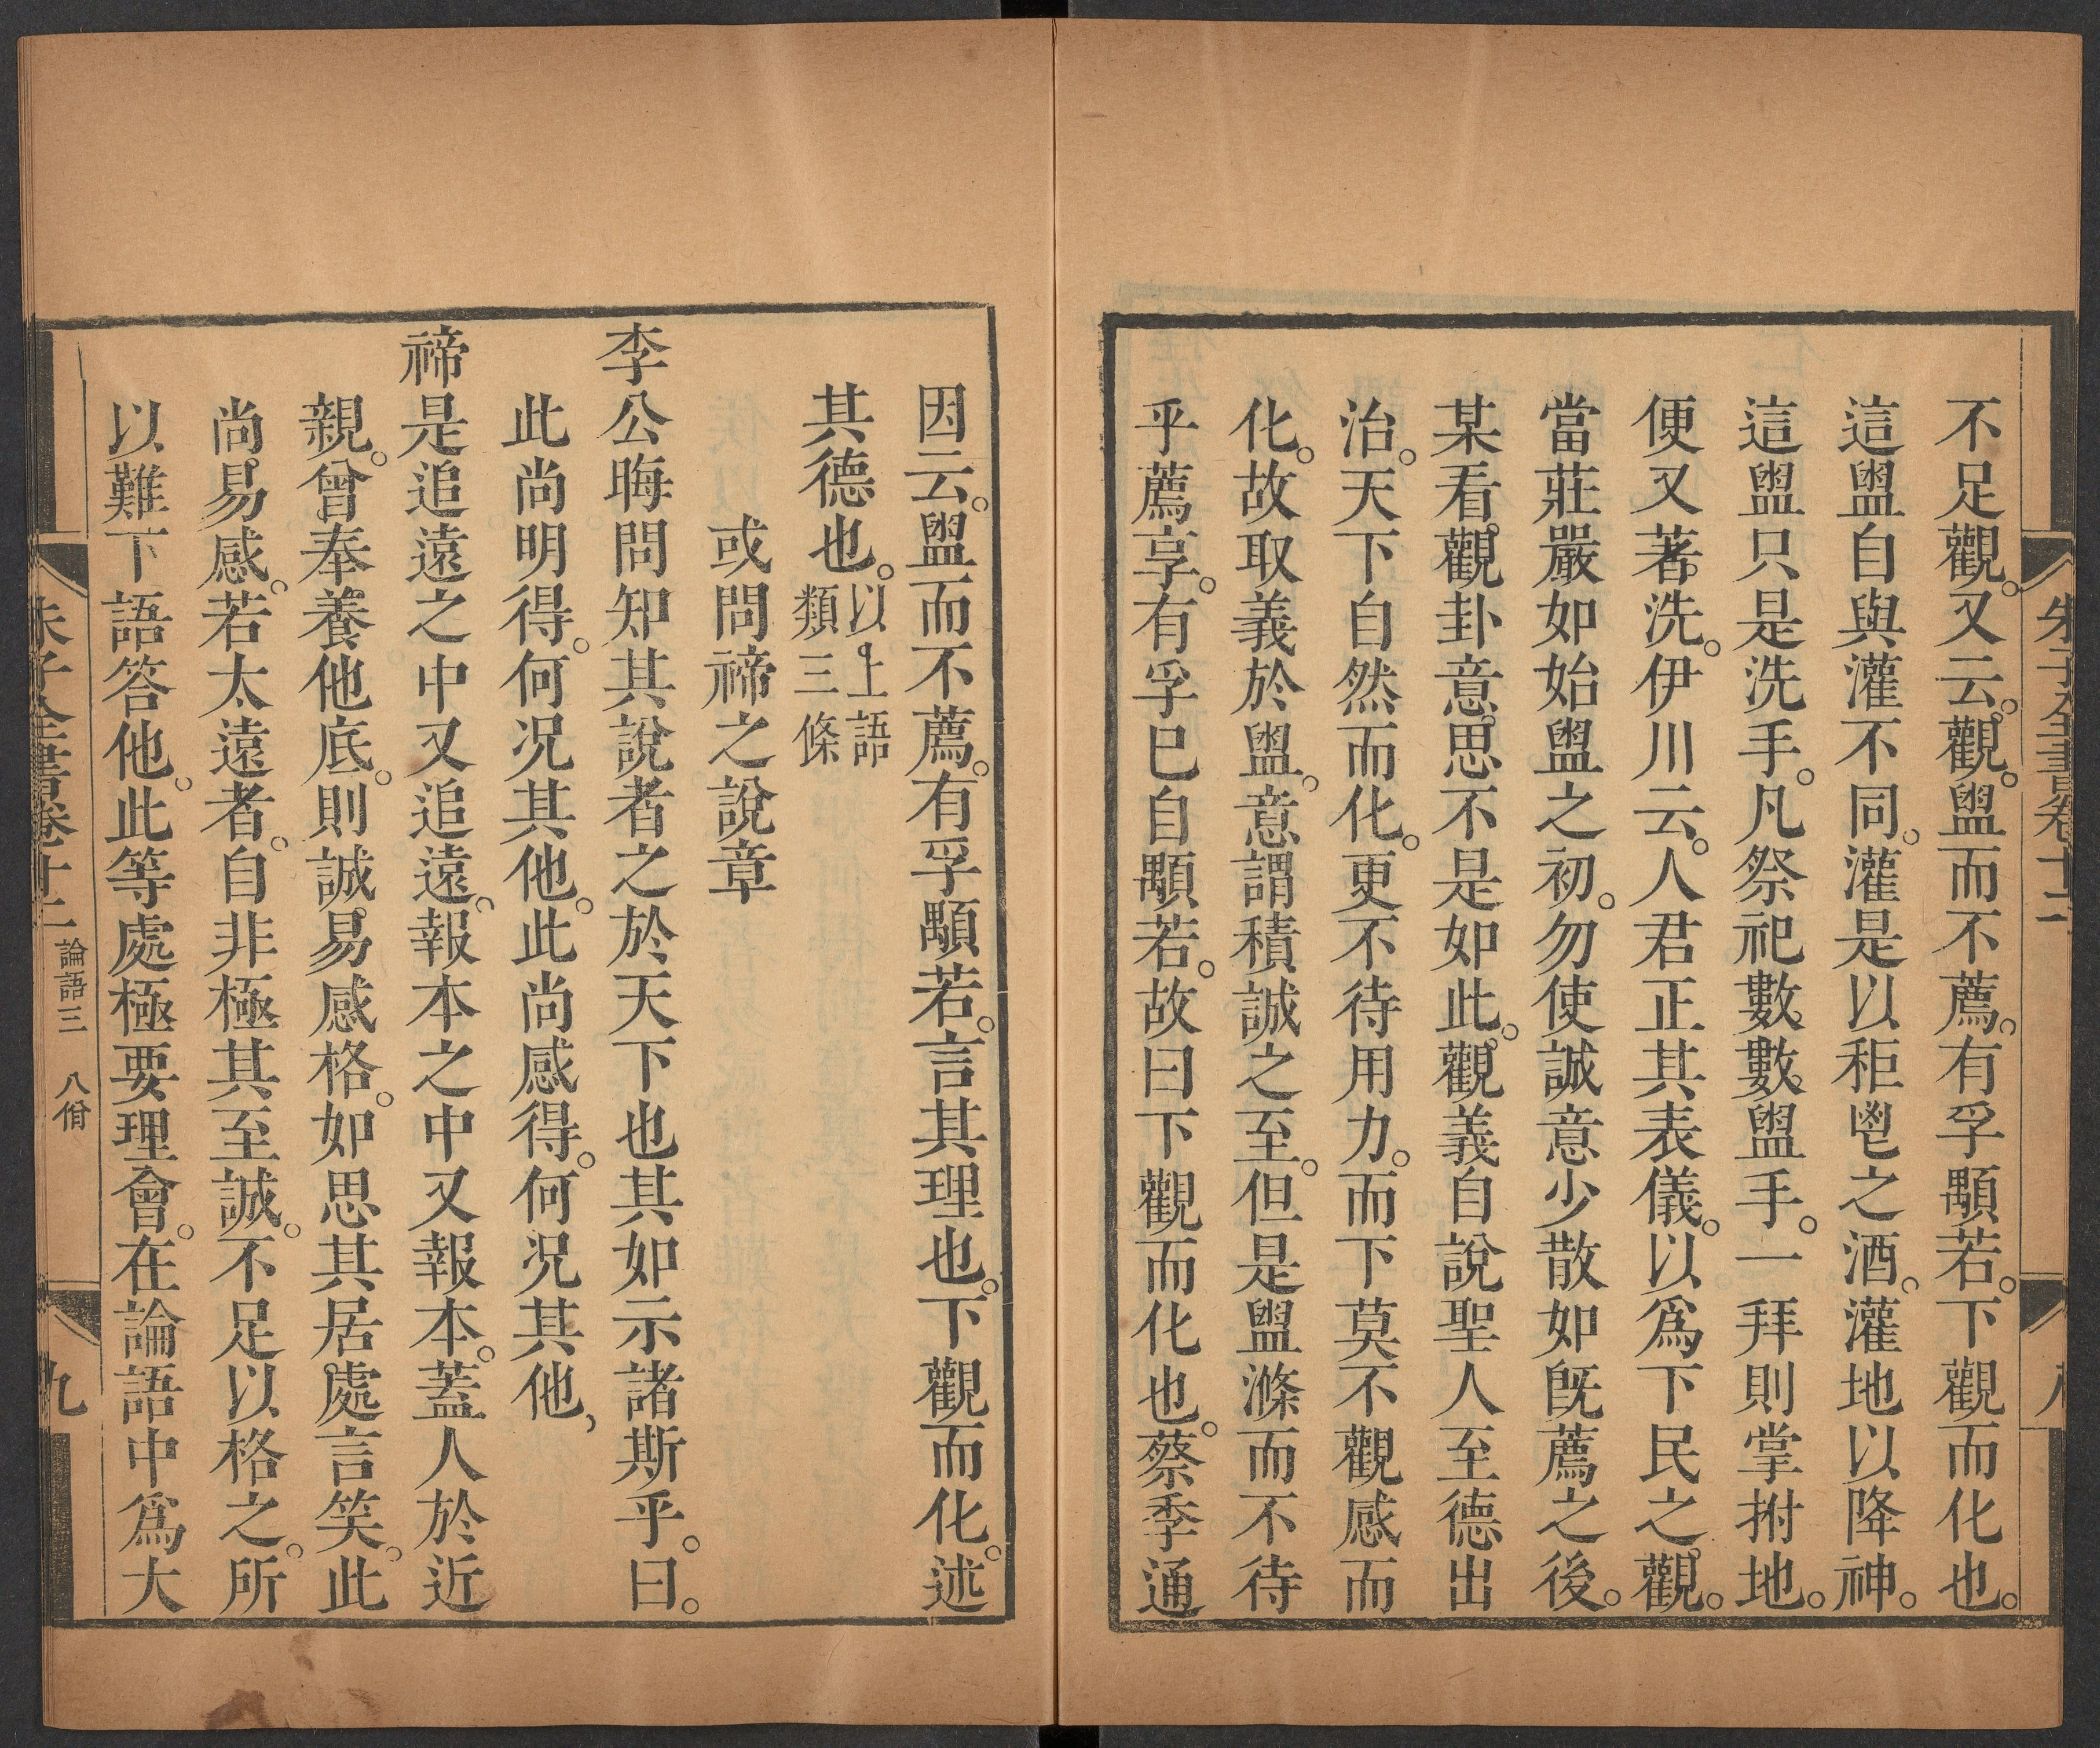 朱子全書卷十二
不足觀。又云。觀。盥而不薦。有孚顒若。下觀而化也。
這盥自與灌不同。灌是以秬鬯之酒。灌地以降神。
這盥只是洗手。凡祭祀數數盥手。一拜則掌拊地。
便又著洗。伊川云。人君正其表儀。以爲下民之觀。
當莊嚴如始盥之初。勿使誠意少散如旣薦之後。
某看觀卦意思不是如此。觀義自說聖人至德出
治。天下自然而化。更不待用力。而下莫不觀感而
化。故取義於盥。意謂積誠之至。但是盥滌而不待
乎薦享。有孚已自顒若。故曰下觀而化也。蔡季通
因云。盥而不薦。有孚顒若。言其理也。下觀而化。述
其德也。以上語
類三條
或問禘之說章
李公晦問知其說者之於天下也其如示諸斯乎。曰。
此尚明得。何況其他。此尚感得。何況其他、
禘是追遠之中又追遠。報本之中又報本。蓋人於近
親。曾奉養他底。則誠易感格。如思其居處言笑。此
尚易感。若太遠者。自非極其至誠。不足以格之。所
以難下語答他。此等處極要理會。在論語中爲大
朱子全書卷十二 論語三 八佾 九